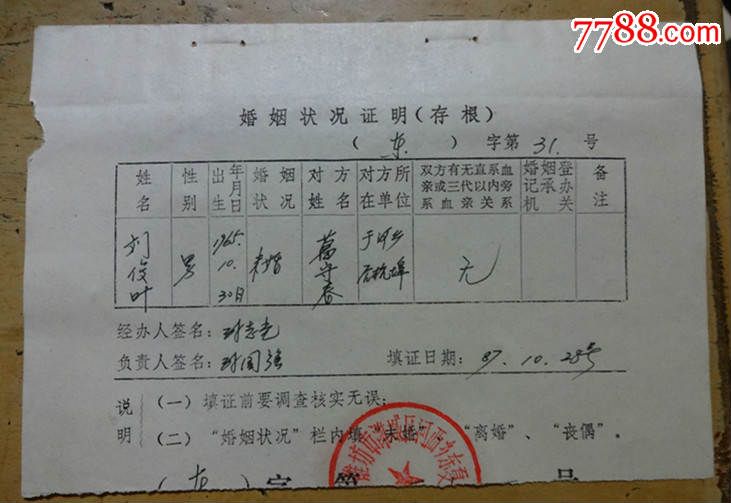 7788.com
婚姻状况证明(存根)
(东)字第31.号
姓名 性别 出生年月日 婚姻状况 对方姓名 对方所在单位 双方有无直系血亲或三代以内旁系血亲关系 婚姻登记承办机关 备注
刘俊叶 男 1965.10.30日 未婚 葛守春 于河乡 无
经办人签名:
负责人签名: 填证日期: 87.10.28号
说明 (一)填证前要调查核实无误;
(二)“婚姻状况”栏内填“未婚”、“离婚”、“丧偶”。
(东)字第 号